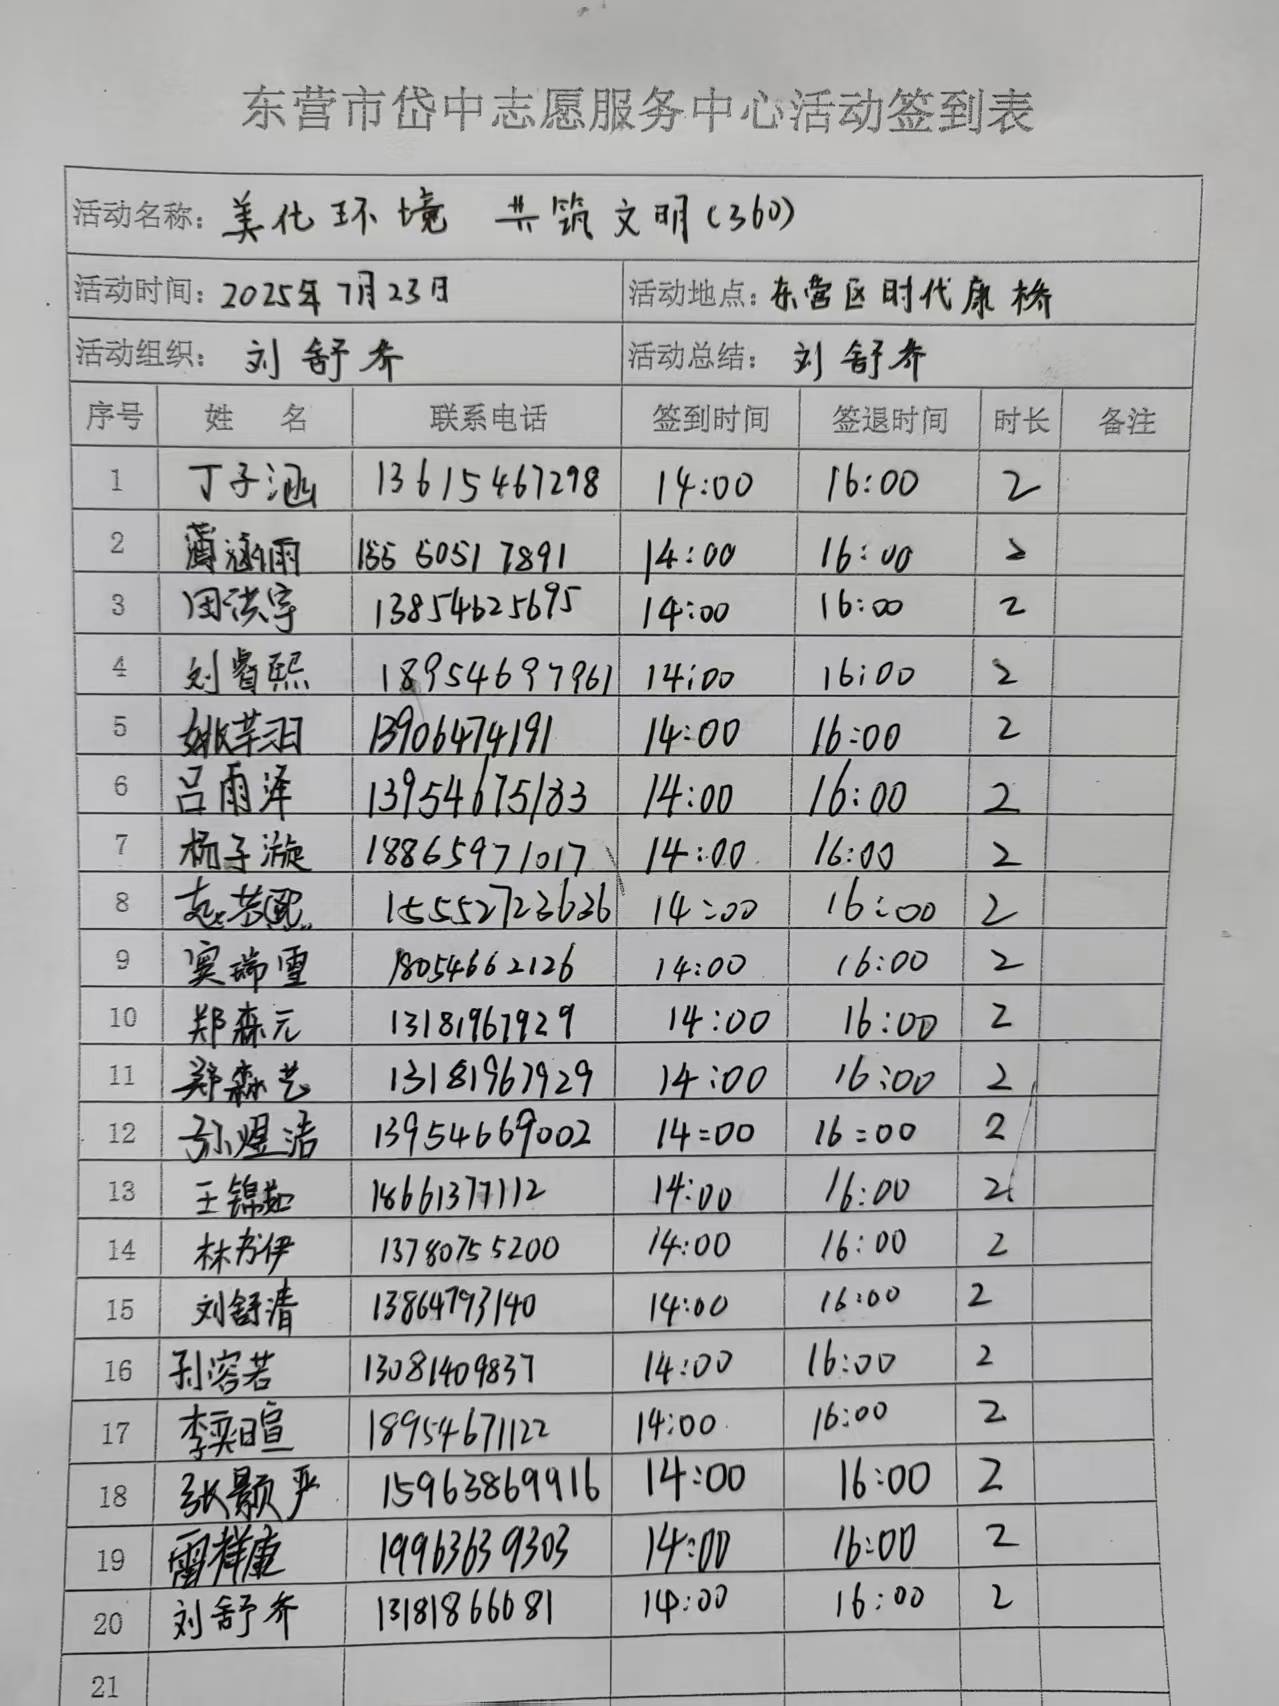 东营市岱中志愿服务中心活动签到表
活动名称: 美化环境 共筑文明(360)
活动时间: 2025年7月23日 活动地点: 东营区时代康桥
活动组织: 刘舒乔 活动总结: 刘舒乔
序号 姓 名 联系电话 签到时间 签退时间 时长 备注
1 丁子涵 13615467298 14:00 16:00 2
2 涵雨 15550517891 14:00 16:00 2
3 田洪宇 13854625695 14:00 16:00 2
4 刘睿熙 18954697961 14:00 16:00 2
5 姚芊羽 13906474191 14:00 16:00 2
6 吕雨泽 13954675183 14:00 16:00 2
7 杨子漩 18865971017 14:00 16:00 2
8 15552723636 14:00 16:00 2
9 窦瑞雪 18054662126 14:00 16:00 2
10 郑森元 13181967929 14:00 16:00 2
11 郑森艺 13181967929 14:00 16:00 2
12 孙煜洁 13954669002 14:00 16:00 2
13 王锦茹 18661377112 14:00 16:00 2
14 林书伊 13780755200 14:00 16:00 2
15 刘舒清 13864793140 14:00 16:00 2
16 孙溶若 13081409837 14:00 16:00 2
17 李奕暄 18954671122 14:00 16:00 2
18 张颢严 15963869916 14:00 16:00 2
19 雷祥康 19963639303 14:00 16:00 2
20 刘舒乔 13181866681 14:00 16:00 2
21